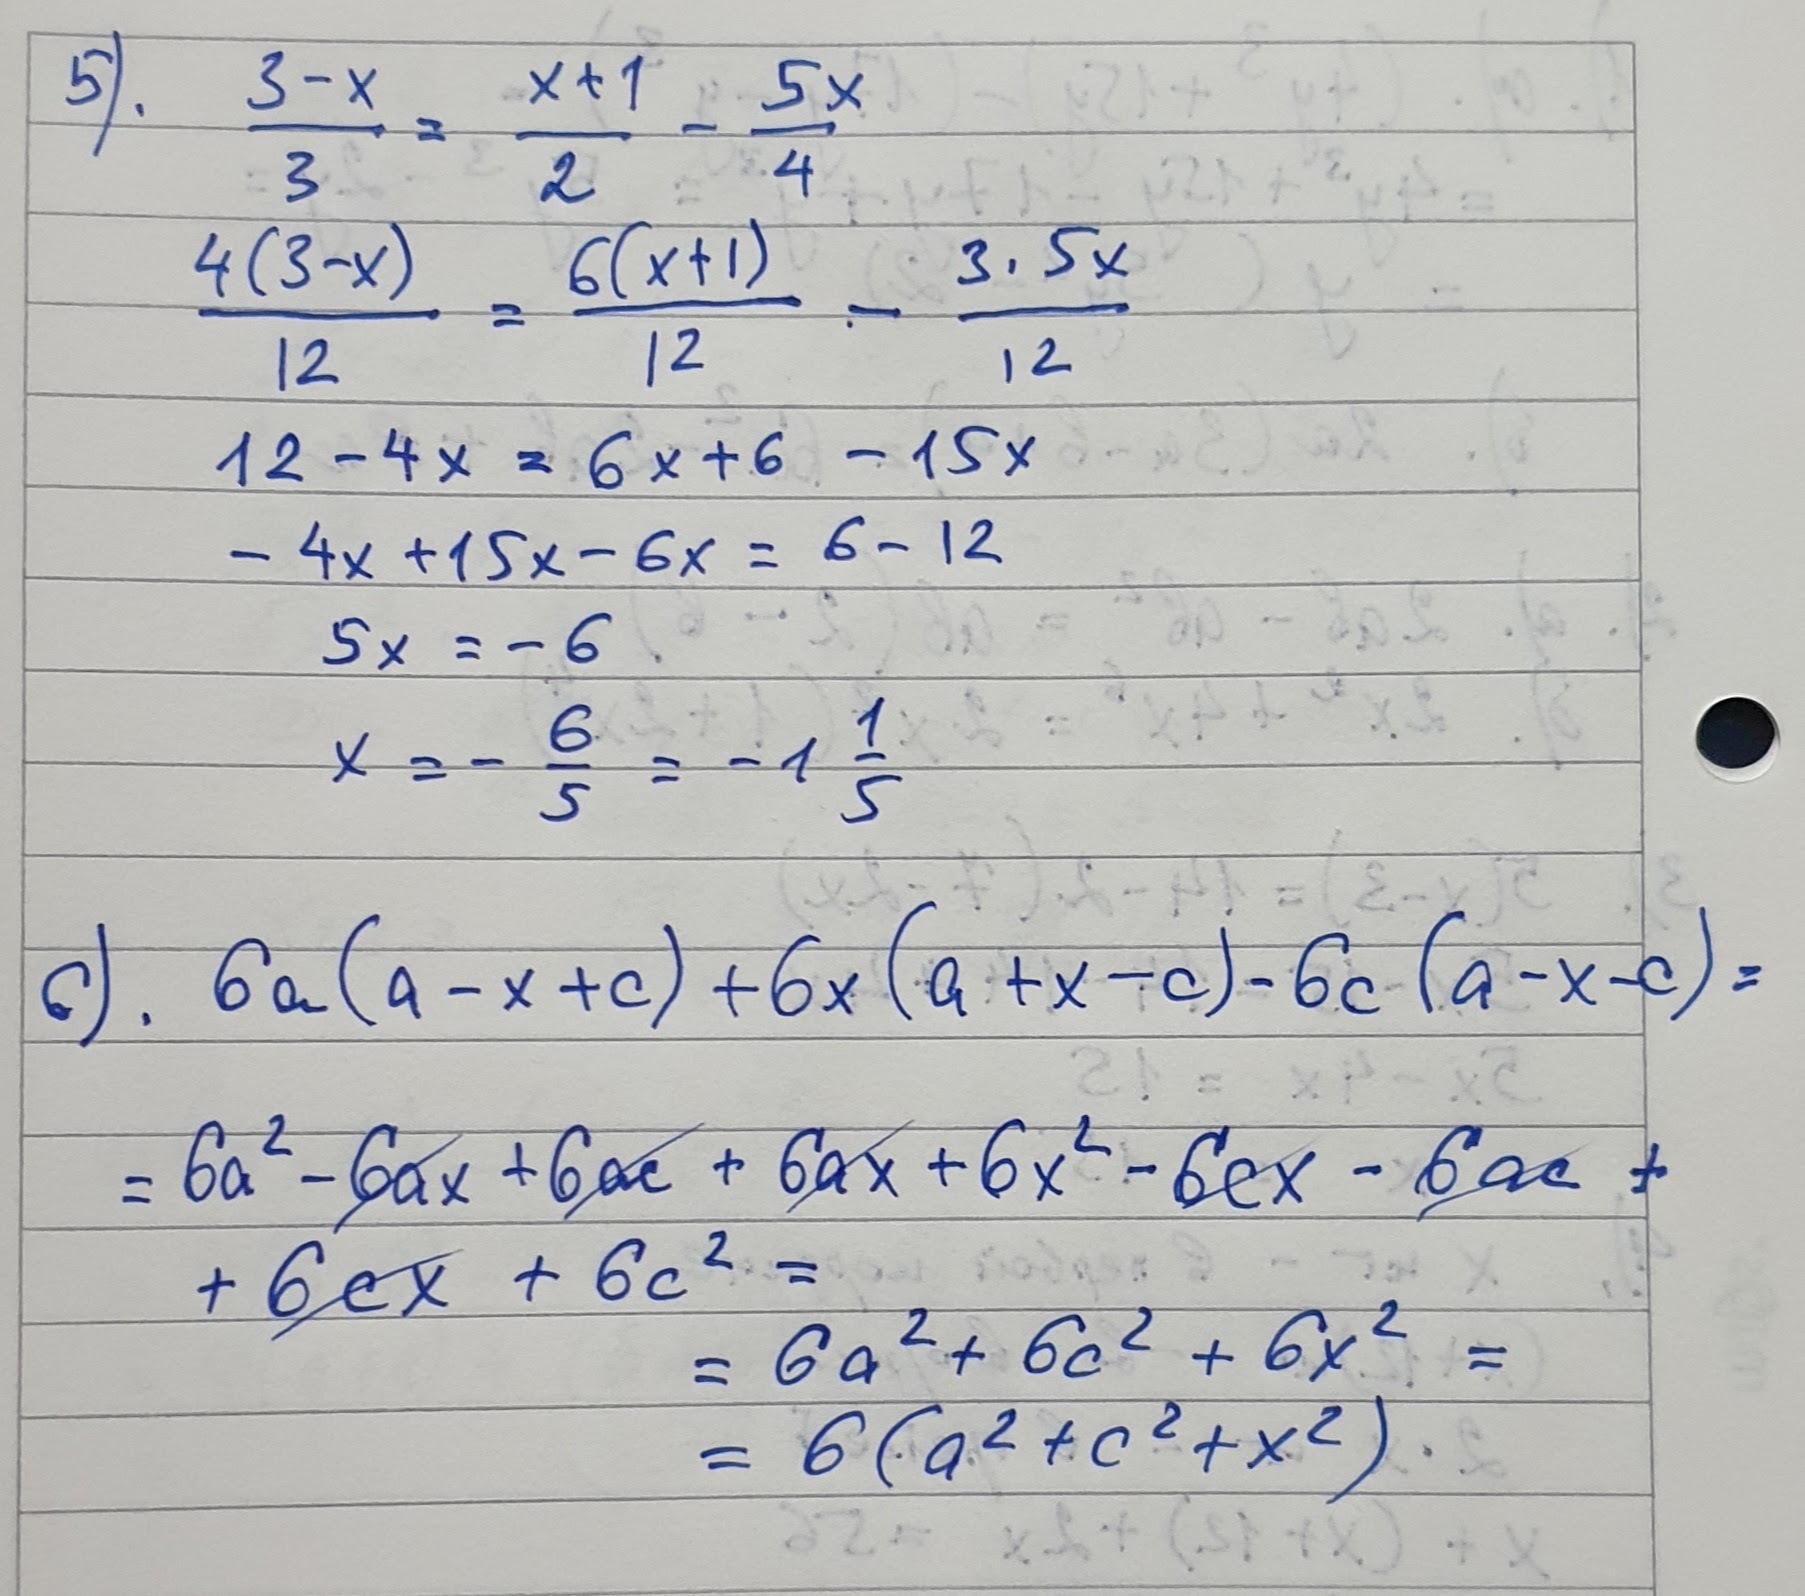 5). (3-x)/3 = (x+1)/2 - 5x/4
4(3-x)/12 = 6(x+1)/12 - 3·5x/12
12 - 4x = 6x + 6 - 15x
- 4x + 15x - 6x = 6 - 12
5x = - 6
x = - 6/5 = - 1 1/5
6). 6a(a - x + c) + 6x(a + x - c) - 6c(a - x - c) =
= 6a² - 6ax + 6ac + 6ax + 6x² - 6cx - 6ac +
+ 6cx + 6c² =
= 6a² + 6c² + 6x² =
= 6(a² + c² + x²).